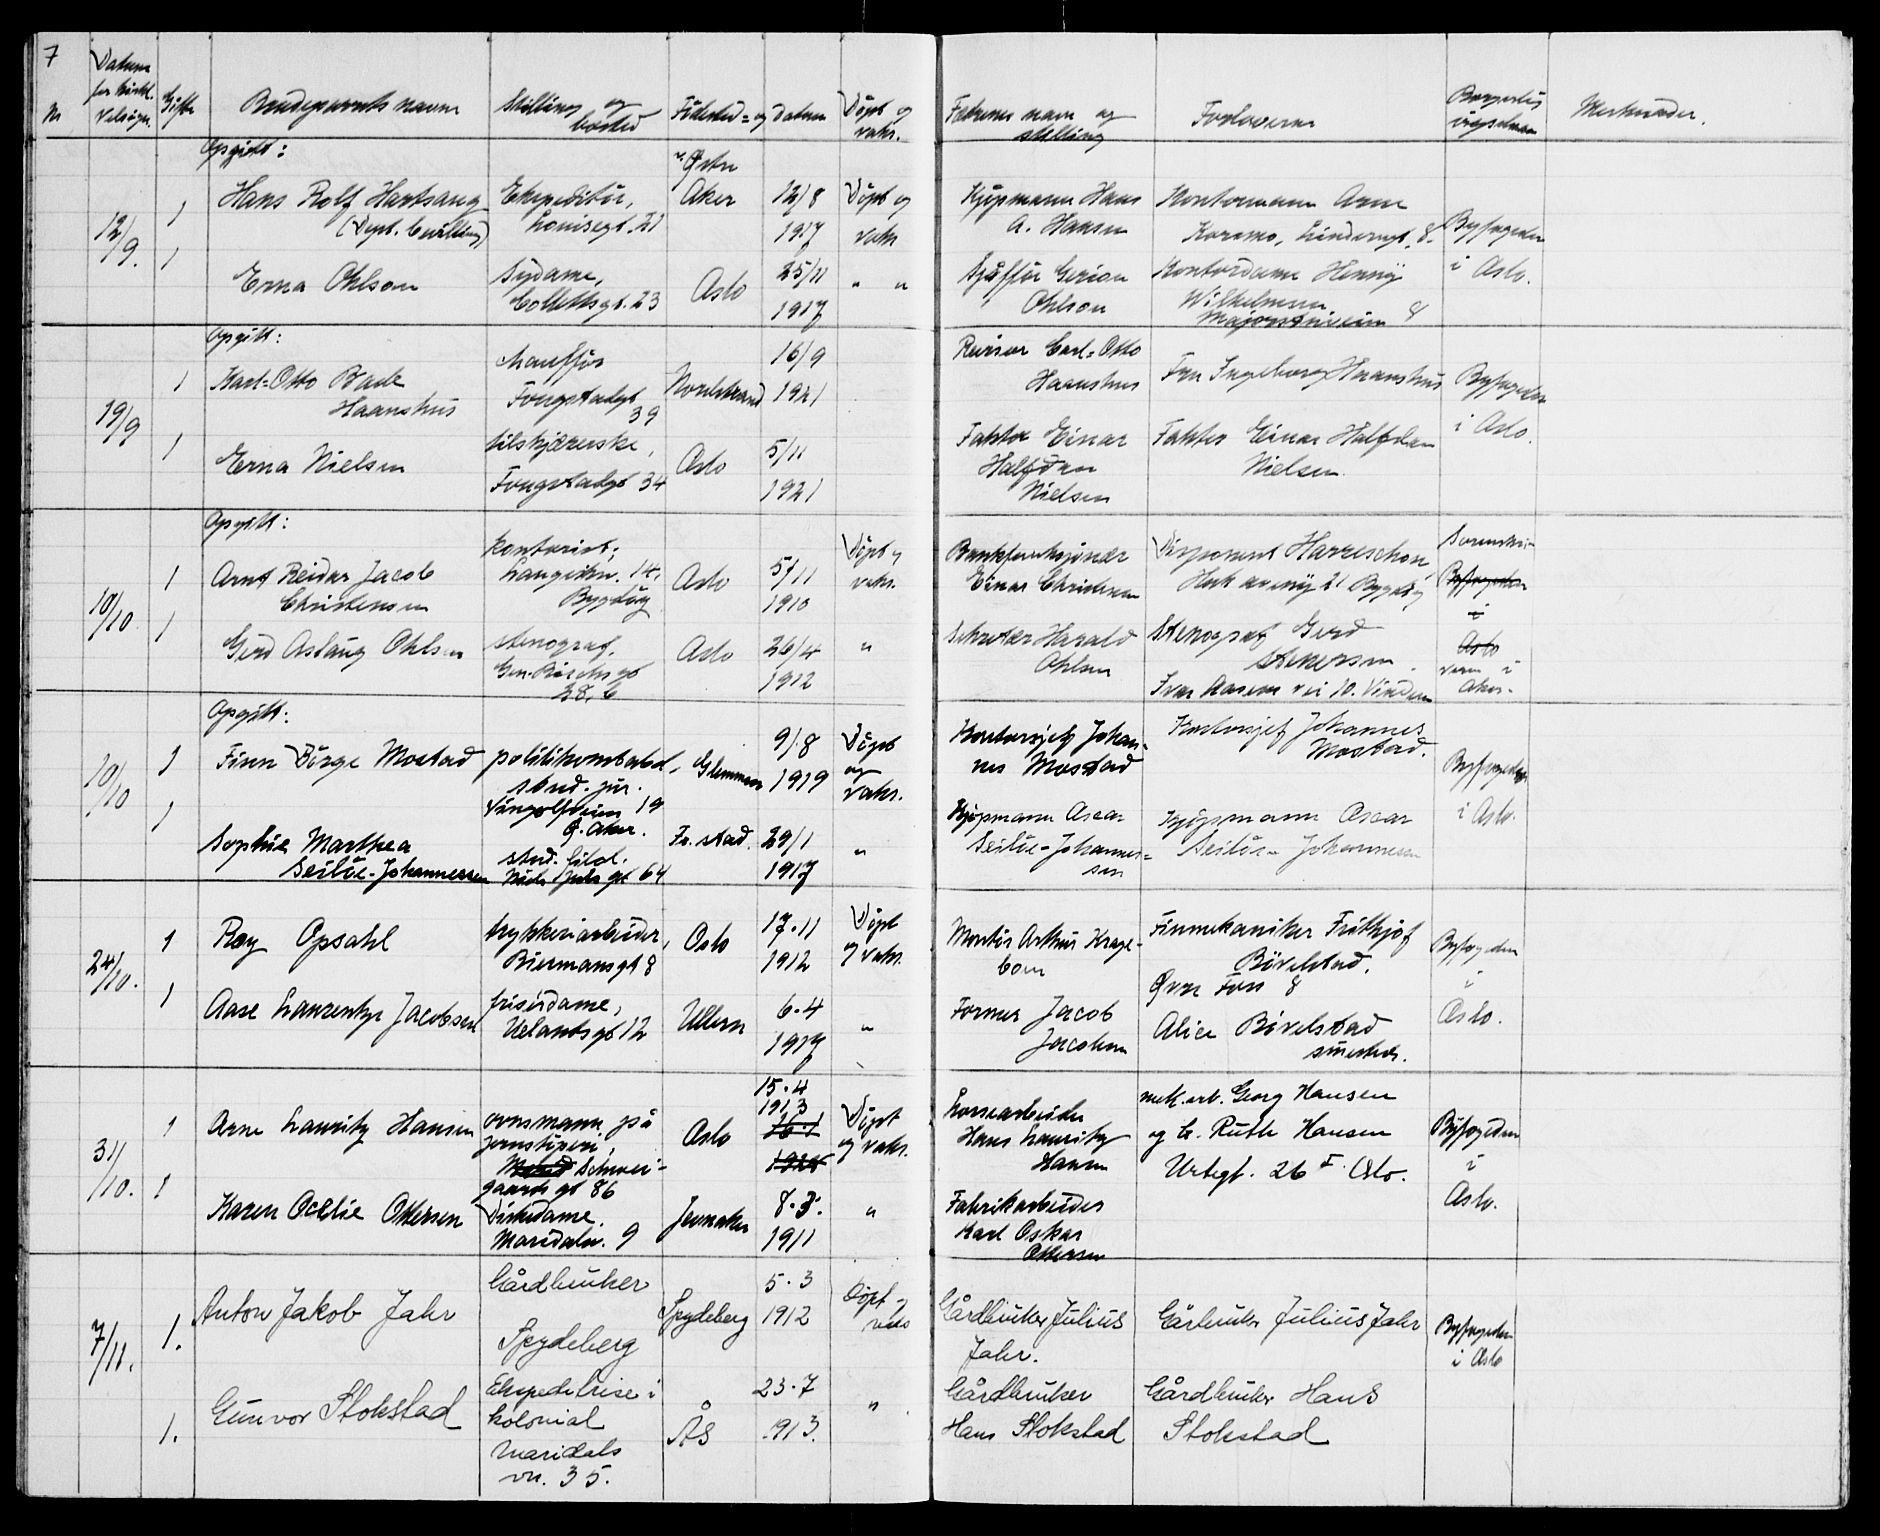 7
Nr
Datum
for kirkl.
Velsign.
Gifte
Brudeparets navne
Stilling og
bosted
Fødested = og datum
Døpt og
vaks.
Fedrenes navn og
stilling
Forloverne
Borgerlig
Merknader.
Opgitt:
v. Østre
Hans Rolf Hartsang
Ekspeditør,
Aker
12/8
Døpt og
Kjøpmann Hans
Kontormann Arne
12/9.
1
Louisegt. 21
1917
vaks
A. Hansen
Korsmo, 8.
Byfogeden
1
Erna Ohlson
Sydame,
Collettsgt. 23
Oslo
25/11
1917
" "
Sjåffør
Ohlson
Kontordame Henny
Wilhelmsen
8
i Oslo.
Opgitt:
1
Karl-Otto Bade
Haanshus
chauffør
Fougstadgt
39
Nordstrand
16/9
1921
Revisor Carl-Otto
Haanshus
Fru Ingeborg Haanshus
Byfogeden
19/9
1
Erna Nielsen
tilskjærerske,
Fougstadgt 34
Oslo
5/11
1921
Faktor Einar
Halfdan
Nielsen
Faktor Einar Halfdan
Nielsen
i Oslo.
Opgitt:
1
Arnt Reidar Jacob
Christensen
kontorist,
14,
Bygdøy
Oslo
5/11
1910
Døpt og
vaks.
Bankfunksjonær
Einar Christensen
Disponent Harrischon
Huk aveny 21 Bygdøy
Sorenskri-
Byfogeden
10/10
1
Gerd Aslaug Ohlsen
stenograf.
Gen. Birchs gt
28, 6
Oslo
26/4
1912
"
Sekretær Harald
Ohlsen
Stenograf Gerd
Stenersen.
Ivar Aasens vei 10. Vinderen
i
Oslo
veren i
Aker.
Opgitt:
1
Finn Børge Mostad
politikonstabel,
stud. jur.
Vingolfveien 19
Ø. Aker.
Glemmen
9/8
1919
Døpt
og
vaks.
Kontorsjef Johan-
nes Mostad
Kontorsjef Johannes
Mostad.
Byfogeden
10/10
1
Sophie Marthea
Seilöe-Johannessen
stud. filol.
Niels Juels gt 64
Fr. stad.
29/1
1917
"
Kjøpmann Oscar
Seilöe-Johannes=
sen
Kjøpmann Oscar
Seilöe-Johannessen
i Oslo.
1
Roy Opsahl
trykkeriarbeider,
Biermansgt 8
Oslo
17.11
1912
Døpt
og vaks.
Montør Arthur Krage-
bom
Finmekaniker Frithjof
Bövelstad.
Øvre Foss 8
Byfogeden
24/10.
1
Aase Laurentze Jacobsen
frisørdame,
Uelandsgt 12
Ullern
6.4
1917
"
Former Jacob
Jacobsen
Alice Bövelstad
smsteds.
i
Oslo.
1
Arne Lauritz Hansen
ovnsmann på
jernstøperi,
Schwei-
gaards gt 86
Oslo
15.4
1913
16.1
Døpt
og vaks.
Hans Lauritz
Hansen
mek. arb. Georg Hansen
og E. Ruth Hansen
Urtegt. 26 I Oslo.
Byfogeden
i
31/10.
1
Karen Ocelie Ottersen
Diskedame.
Maridalv. 9
Jevnaker
8.3.
1911
"
Fabrikarbeider
Karl Oskar
Ottersen
Oslo.
Anton Jakob Jahr
Gårdbruker
Spydeberg
Spydeberg
5.3
1912
Døpt -
vaks
Gårdbruker Julius
Jahr.
Gårbruker Julius Jahr
Byfogeden
i Oslo
7/11.
1.
1.
Gunvor Stokstad
Ekspeditrise i
kolonial
Maridals
vn. 35.
Ås
23.7
1913.
"
Gårdbruker
Hans Stokstad
Gårdbruker Hans
Stokstad